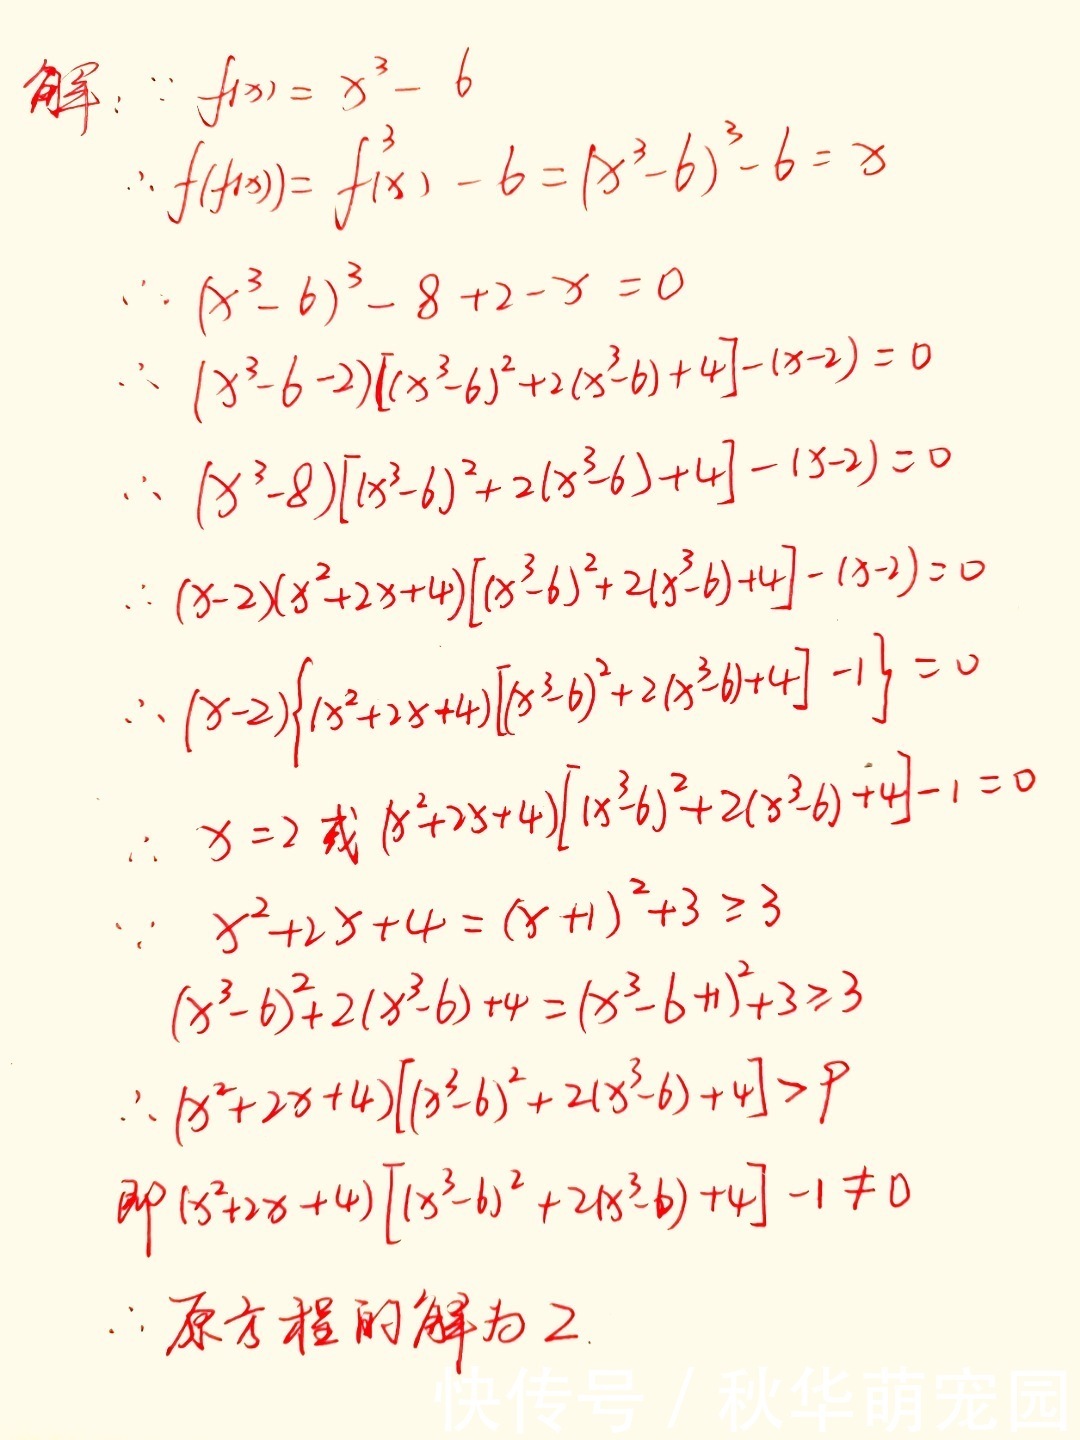 解：∵ f(x) = x³ - 6
∴ f(f(x)) = f³(x) - 6 = (x³-6)³ - 6 = x
∴ (x³-6)³ - 8 + 2 - x = 0
∴ (x³-6-2)[(x³-6)²+2(x³-6)+4]-(x-2) = 0
∴ (x³-8)[(x³-6)²+2(x³-6)+4]-(x-2) = 0
∴ (x-2)(x²+2x+4)[(x³-6)²+2(x³-6)+4]-(x-2) = 0
∴ (x-2){(x²+2x+4)[(x³-6)²+2(x³-6)+4]-1} = 0
∴ x = 2 或 (x²+2x+4)[(x³-6)²+2(x³-6)+4]-1 = 0
∵ x²+2x+4 = (x+1)²+3 ≥ 3
(x³-6)²+2(x³-6)+4 = (x³-6+1)²+3 ≥ 3
∴ (x²+2x+4)[(x³-6)²+2(x³-6)+4] > 9
即 (x²+2x+4)[(x³-6)²+2(x³-6)+4]-1 ≠ 0
∴ 原方程的解为 2.
快传号 / 秋华萌宠园